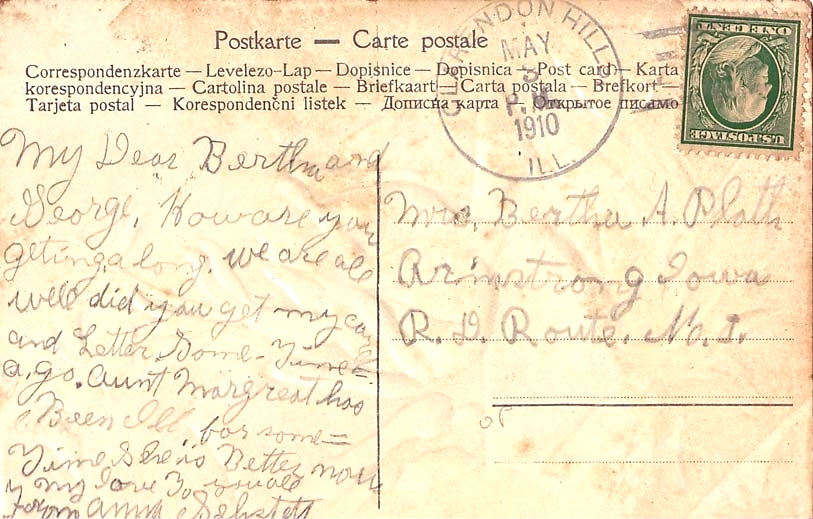 Postkarte — Carte postale
Correspondenzkarte — Levelezo-Lap — Dopisnice — Dopisnica — Post card — Karta
korespondencyjna — Cartolina postale — Briefkaart — Carta postala — Brefkort —
Tarjeta postal — Korespondenčni listek — Дописна карта — Открытое письмо
CLARENDON HILLS
MAY
3
P.M.
1910
ILL.
U.S. POSTAGE
ONE CENT
My Dear Bertha and
George, How are you
geting a long. we are all
well did you get my card
and Letter Some-Time=
a, go. Aunt Margreat has
Been Ill for some=
Time She is Better now
my love To you all
from Anna
Mrs. Bertha A. Plath
Armstrong Iowa
R. D. Route. No. 1.